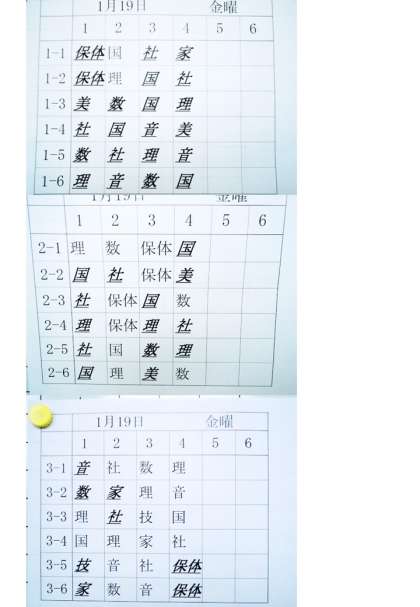 1月19日 金曜
1 2 3 4 5 6
1-1 保体 国 社 家
1-2 保体 理 国 社
1-3 美 数 国 理
1-4 社 国 音 美
1-5 数 社 理 音
1-6 理 音 数 国
1月19日 金曜
1 2 3 4 5 6
2-1 理 数 保体 国
2-2 国 社 保体 美
2-3 社 保体 国 数
2-4 理 保体 理 社
2-5 社 国 数 理
2-6 国 理 美 数
1月19日 金曜
1 2 3 4 5 6
3-1 音 社 数 理
3-2 数 家 理 音
3-3 理 社 技 国
3-4 国 理 家 社
3-5 技 音 社 保体
3-6 家 数 音 保体